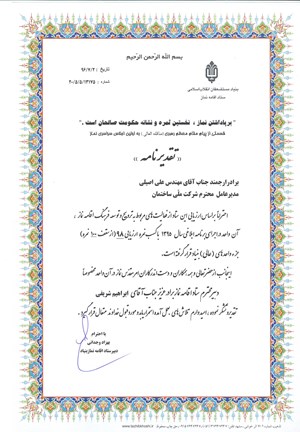 بسم الله الرحمن الرحیم
تاریخ : ۹۶/۷/۲
شماره : ۲۰/۵/۵/۱۳۱۷۵
بنیاد مستضعفان انقلاب اسلامی
ستاد اقامه نماز
" برپاداشتن نماز ، نخستین ثمره و نشانه حکومت صالحان است . "
قسمتی از پیام مقام معظم رهبری (مدظله العالی) به اولین اجلاس سراسری نماز
« تقدیرنامه »
برادر ارجمند جناب آقای مهندس علی اصیلی
مدیرعامل محترم شرکت ملّی ساختمان
احتراماً براساس ارزیابی این ستاد از فعالیت‌های مربوط به ترویج و توسعه فرهنگ اقامه نماز ،
آن واحد در اجرای برنامه ابلاغی سال ۱۳۹۵ با کسب نمره ارزیابی ۹۸ (از سقف ۱۰۰ نمره)
جزء واحدهای (عالی) بنیاد قرار گرفته است.
اینجانب از حضرتعالی و همه همکاران و دست اندرکاران امر مقدس نماز در آن واحد مخصوصاً
دبیر محترم ستاد اقامه نماز برادر عزیز جناب آقای ابراهیم شریفی
تقدیر و تشکر نموده ، امیدوارم تلاش‌های بعمل آمده استمرار یابد و مورد قبول خداوند متعال قرار گیرد.
با احترام
بهزاد وجدانی
دبیر ستاد اقامه نماز بنیاد